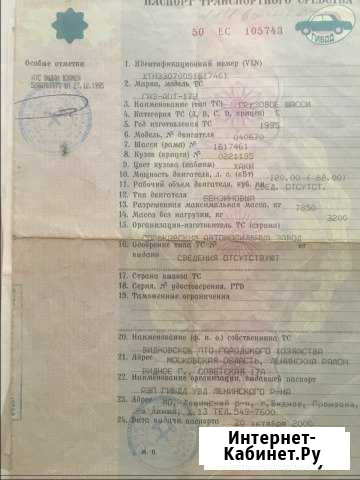 ПАСПОРТ ТРАНСПОРТНОГО СРЕДСТВА
50 ЕС 105743
ГИБДД
Особые отметки
ПТС ВЫДАН ВЗАМЕН
27.12.1995
1. Идентификационный номер (VIN)
2. Марка, модель ТС
3. Наименование (тип ТС) ГРУЗОВОЕ ШАССИ
4. Категория ТС (А, В, С, D, прицеп) С
5. Год изготовления ТС 1995
6. Модель, № двигателя 040670
7. Шасси (рама) № 1617461
8. Кузов (прицеп) № 0221195
9. Цвет кузова (кабины) ХАКИ
10. Мощность двигателя, л. с. (кВт) 120.00 ( 88.00)
11. Рабочий объем двигателя, куб. см СВЕД. ОТСУТСТ.
12. Тип двигателя БЕНЗИНОВЫЙ
13. Разрешенная максимальная масса, кг 7850
14. Масса без нагрузки, кг 3200
15. Организация-изготовитель ТС (страна)
ГОРЬКОВСКИЙ АВТОМОБИЛЬНЫЙ ЗАВОД
16. Одобрение типа ТС № от
выдано СВЕДЕНИЯ ОТСУТСТВУЮТ
17. Страна вывоза ТС
18. Серия, № удостоверения, ГТД
19. Таможенные ограничения
20. Наименование (ф. и. о.) собственника ТС
ВИДНОВСКОЕ ПТО ГОРОДСКОГО ХОЗЯЙСТВА
21. Адрес МОСКОВСКАЯ ОБЛАСТЬ, ЛЕНИНСКИЙ РАЙОН
ВИДНОЕ Г., СОВЕТСКАЯ 17А
22. Наименование организации, выдавшей паспорт
РЭП ГИБДД УВД ЛЕНИНСКОГО Р-НА
23. Адрес МО, Ленинский р-н, г.Видное, Промзона,
13 ТЕЛ.549-7600.
24. Дата выдачи паспорта 20 октября 2000
М. П.
Интернет-
Кабинет.Ру